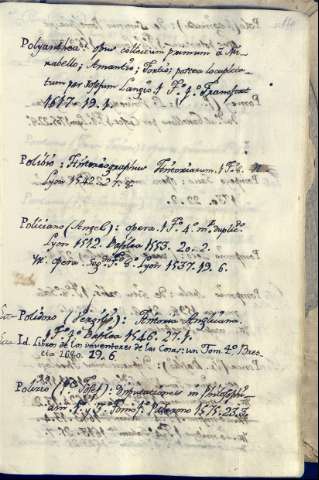 Polyanthea: opus collectum primum à Mi-
rabello; Amantio; Tortio, postea locupleta-
tum per Josephum Langio 1 Tº fº Francfort
1617. 19. 1.
Polibio: Historiographus Historiarum. 1 Tº 8º
Lyon 1542. 27. 8.
Policiano (Angel): opera. 1 Tº 4º
Lyon 1512. Basilea 1553. 20. 2.
Yt. opera Tº 8º Lyon 1537. 19. 6.
Polidoro (Vergilio): Historia Anglicana
1 Tº fº Basilea 1546. 27. 1.
Id. Libro de los inventores de las Cosas: un Tom. 4º Bres-
cia 1680. 29. 6.
Polizio (Pº Josef): Disputationes in Philosoph-
iam. Tomis fº Palermo 1675. 23. 3.